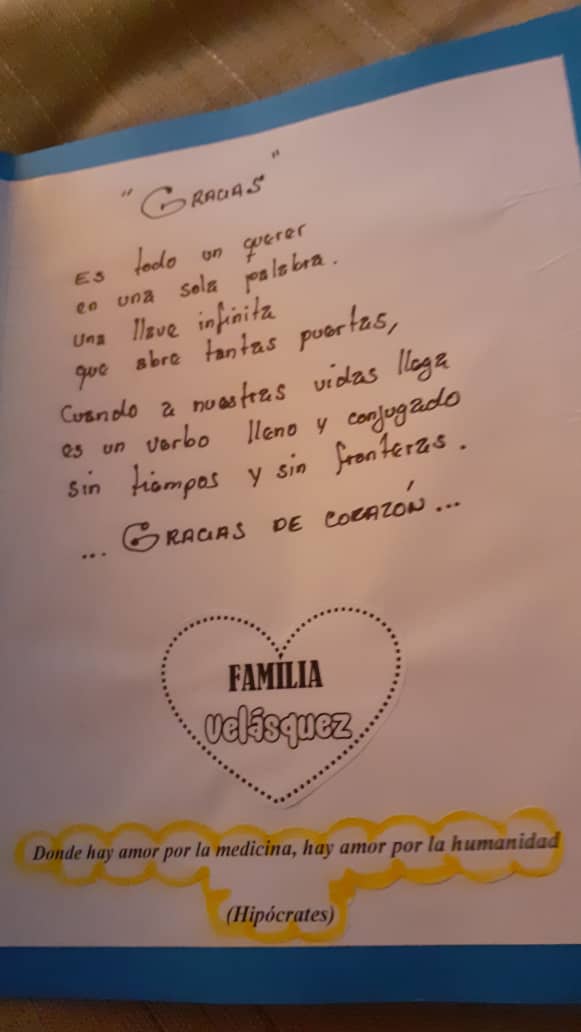 "GRACIAS"
Es todo un querer
en una sola palabra.
Una llave infinita
que abre tantas puertas,
Cuando a nuestras vidas llega
es un verbo lleno y conjugado
sin tiempos y sin fronteras.
... GRACIAS DE CORAZÓN...
FAMÍLIA
Velásquez
Donde hay amor por la medicina, hay amor por la humanidad
(Hipócrates)